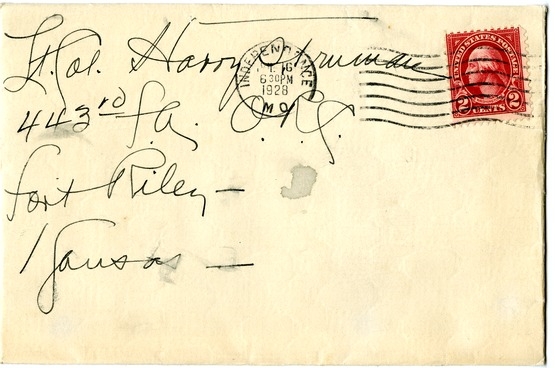 Lt. Col. Harry Truman
443rd F.A. O.R.C.
Fort Riley —
Kansas —
INDEPENDENCE
6 30 PM
1928
MO.
UNITED STATES POSTAGE
2 CENTS 2